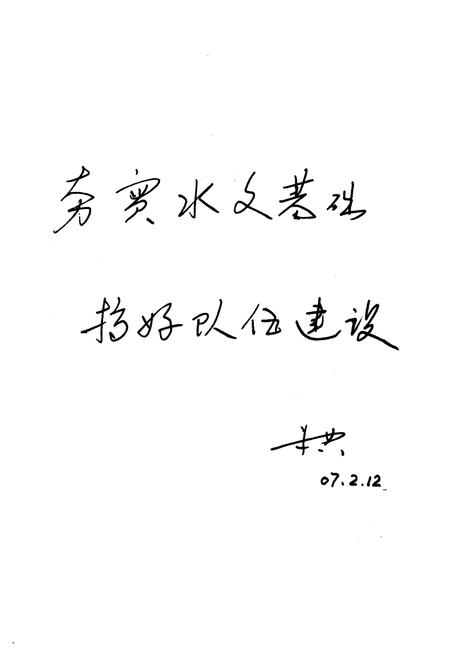 夯实水文基础
搞好队伍建设
07.2.12